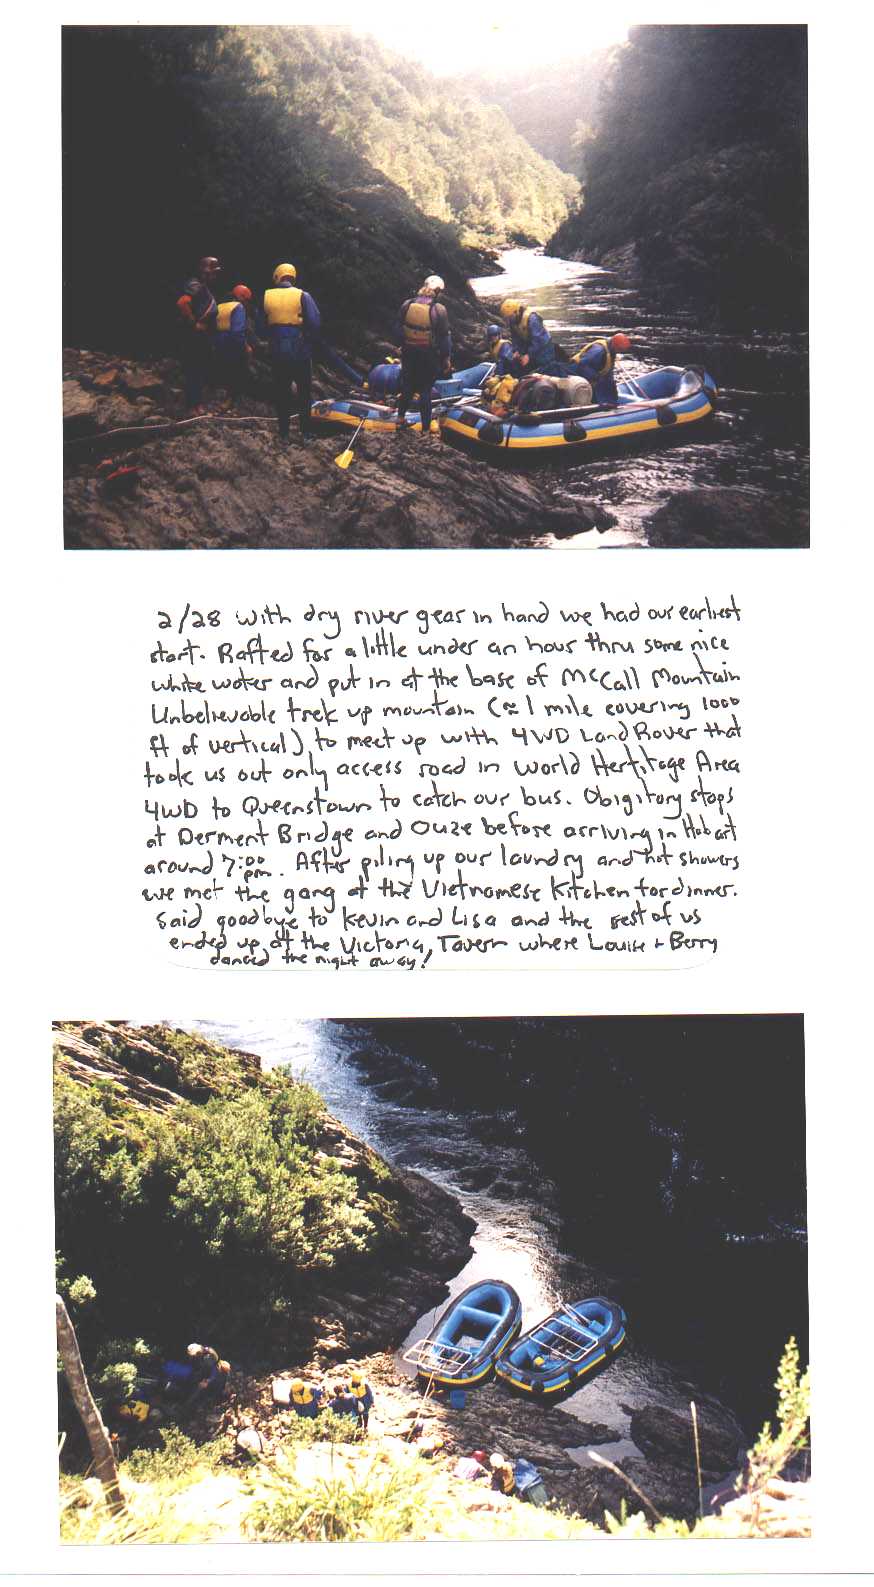 2/28 with dry river gear in hand we had our earliest
start. Rafted for a little under an hour thru some nice
white water and put in at the base of McCall Mountain
Unbelievable trek up mountain (≈ 1 mile covering 1000
ft of vertical) to meet up with 4WD Land Rover that
took us out only access road in World Hertitage Area
4WD to Queenstown to catch our bus. Obigitory stops
at Derment Bridge and Ouze before arriving in Hobart
around 7:00 pm. After piling up our laundry and hot showers
we met the gang at the Vietnamese Kitchen for dinner.
Said goodbye to Kevin and Lisa and the rest of us
ended up at the Victoria Tavern where Louise + Berry
danced the night away!